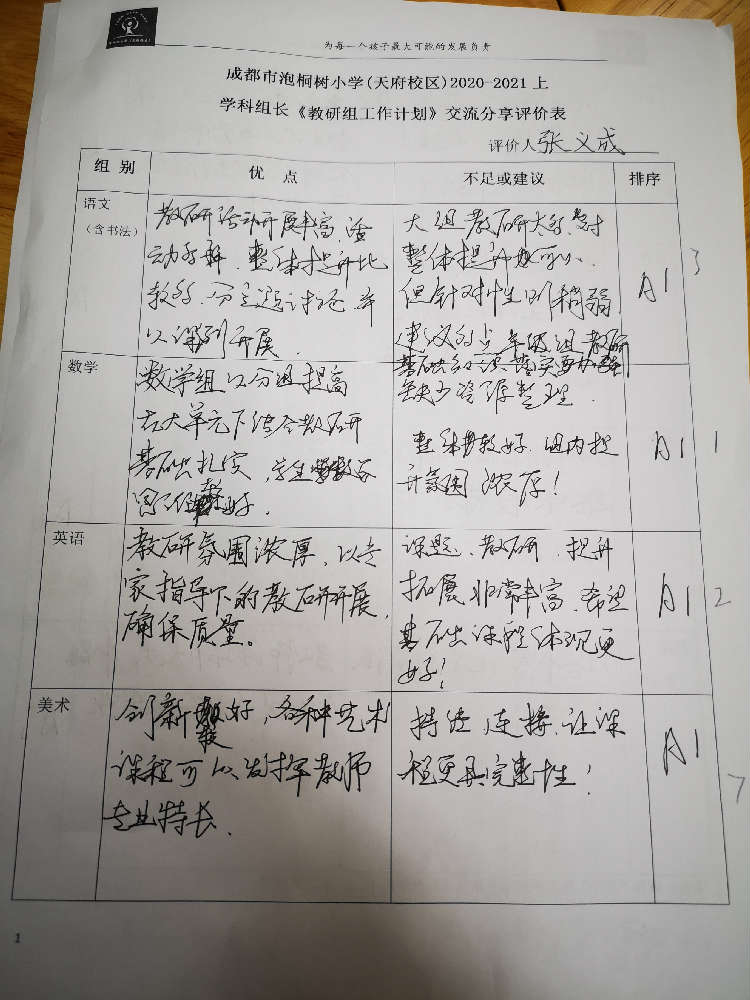 为每一个孩子最大可能的发展负责
成都市泡桐树小学(天府校区)2020-2021上
学科组长《教研组工作计划》交流分享评价表
评价人 张义成
组别 优点 不足或建议 排序
语文
(含书法)
教研活动开展丰富,活
动多样,整体提升比
较多,分主题讨论,并
以课例开展.
大组教研太多,对
整体提升度可以,
但针对性则稍弱
建议多点年级组教研
A1 3
数学
数学组以分组提高
在大单元下结合教研
基础扎实,学生
较好.
缺少资源整理.
整体较好,组内提
升氛围浓厚!
A1 1
英语
教研氛围浓厚,以专
家指导下的教研开展,
确保质量。
课题、教研、提升
拓展非常丰富.希望
基础课程体现更
好!
A1 2
美术
创新较好,各种艺术
课程可以发挥教师
专业特长.
持续,连接,让课
程更具完整性!
A1 7
1